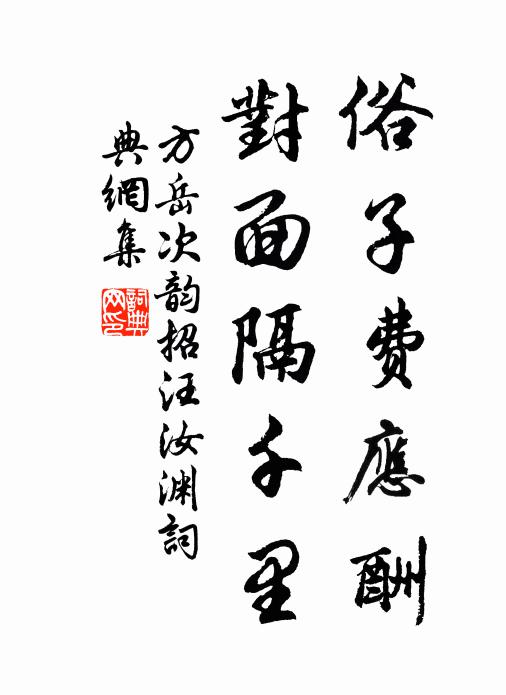 俗子費應酬
對面隔千里
方岳次韵招汪汝渊詞
典網集
詞典
网印